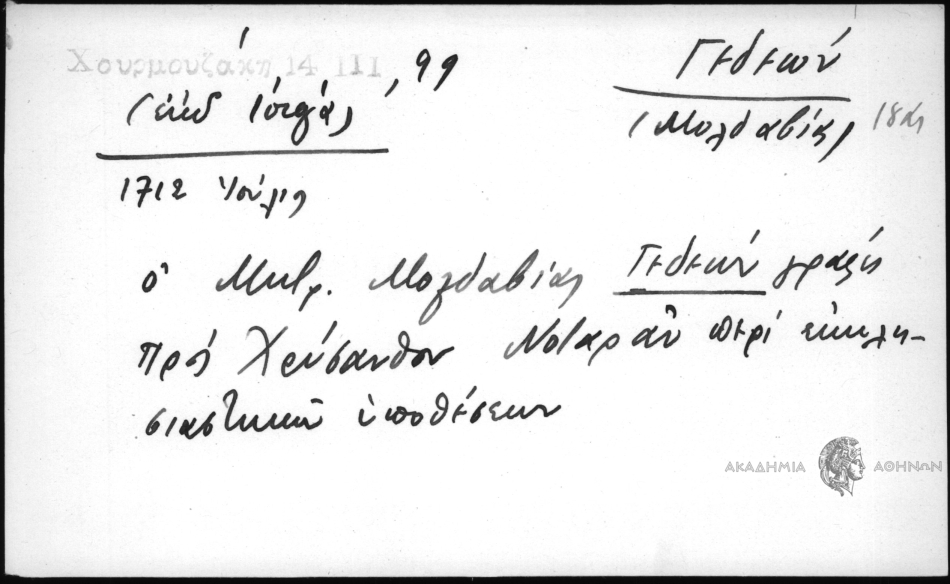 Χουρμουζάκη 14 III, 99
(ἐκδ Ἰόργα)
Γεδεών
(Μολδαβίας) 18ος
1712 Ἰούλιο
ὁ Μητρ. Μολδαβίας Γεδεών γράφει
πρός Χρύσανθον Νοταρᾶν περί ἐκκλη-
σιαστικῶν ὑποθέσεων
ΑΚΑΔΗΜΙΑ ΑΘΗΝΩΝ